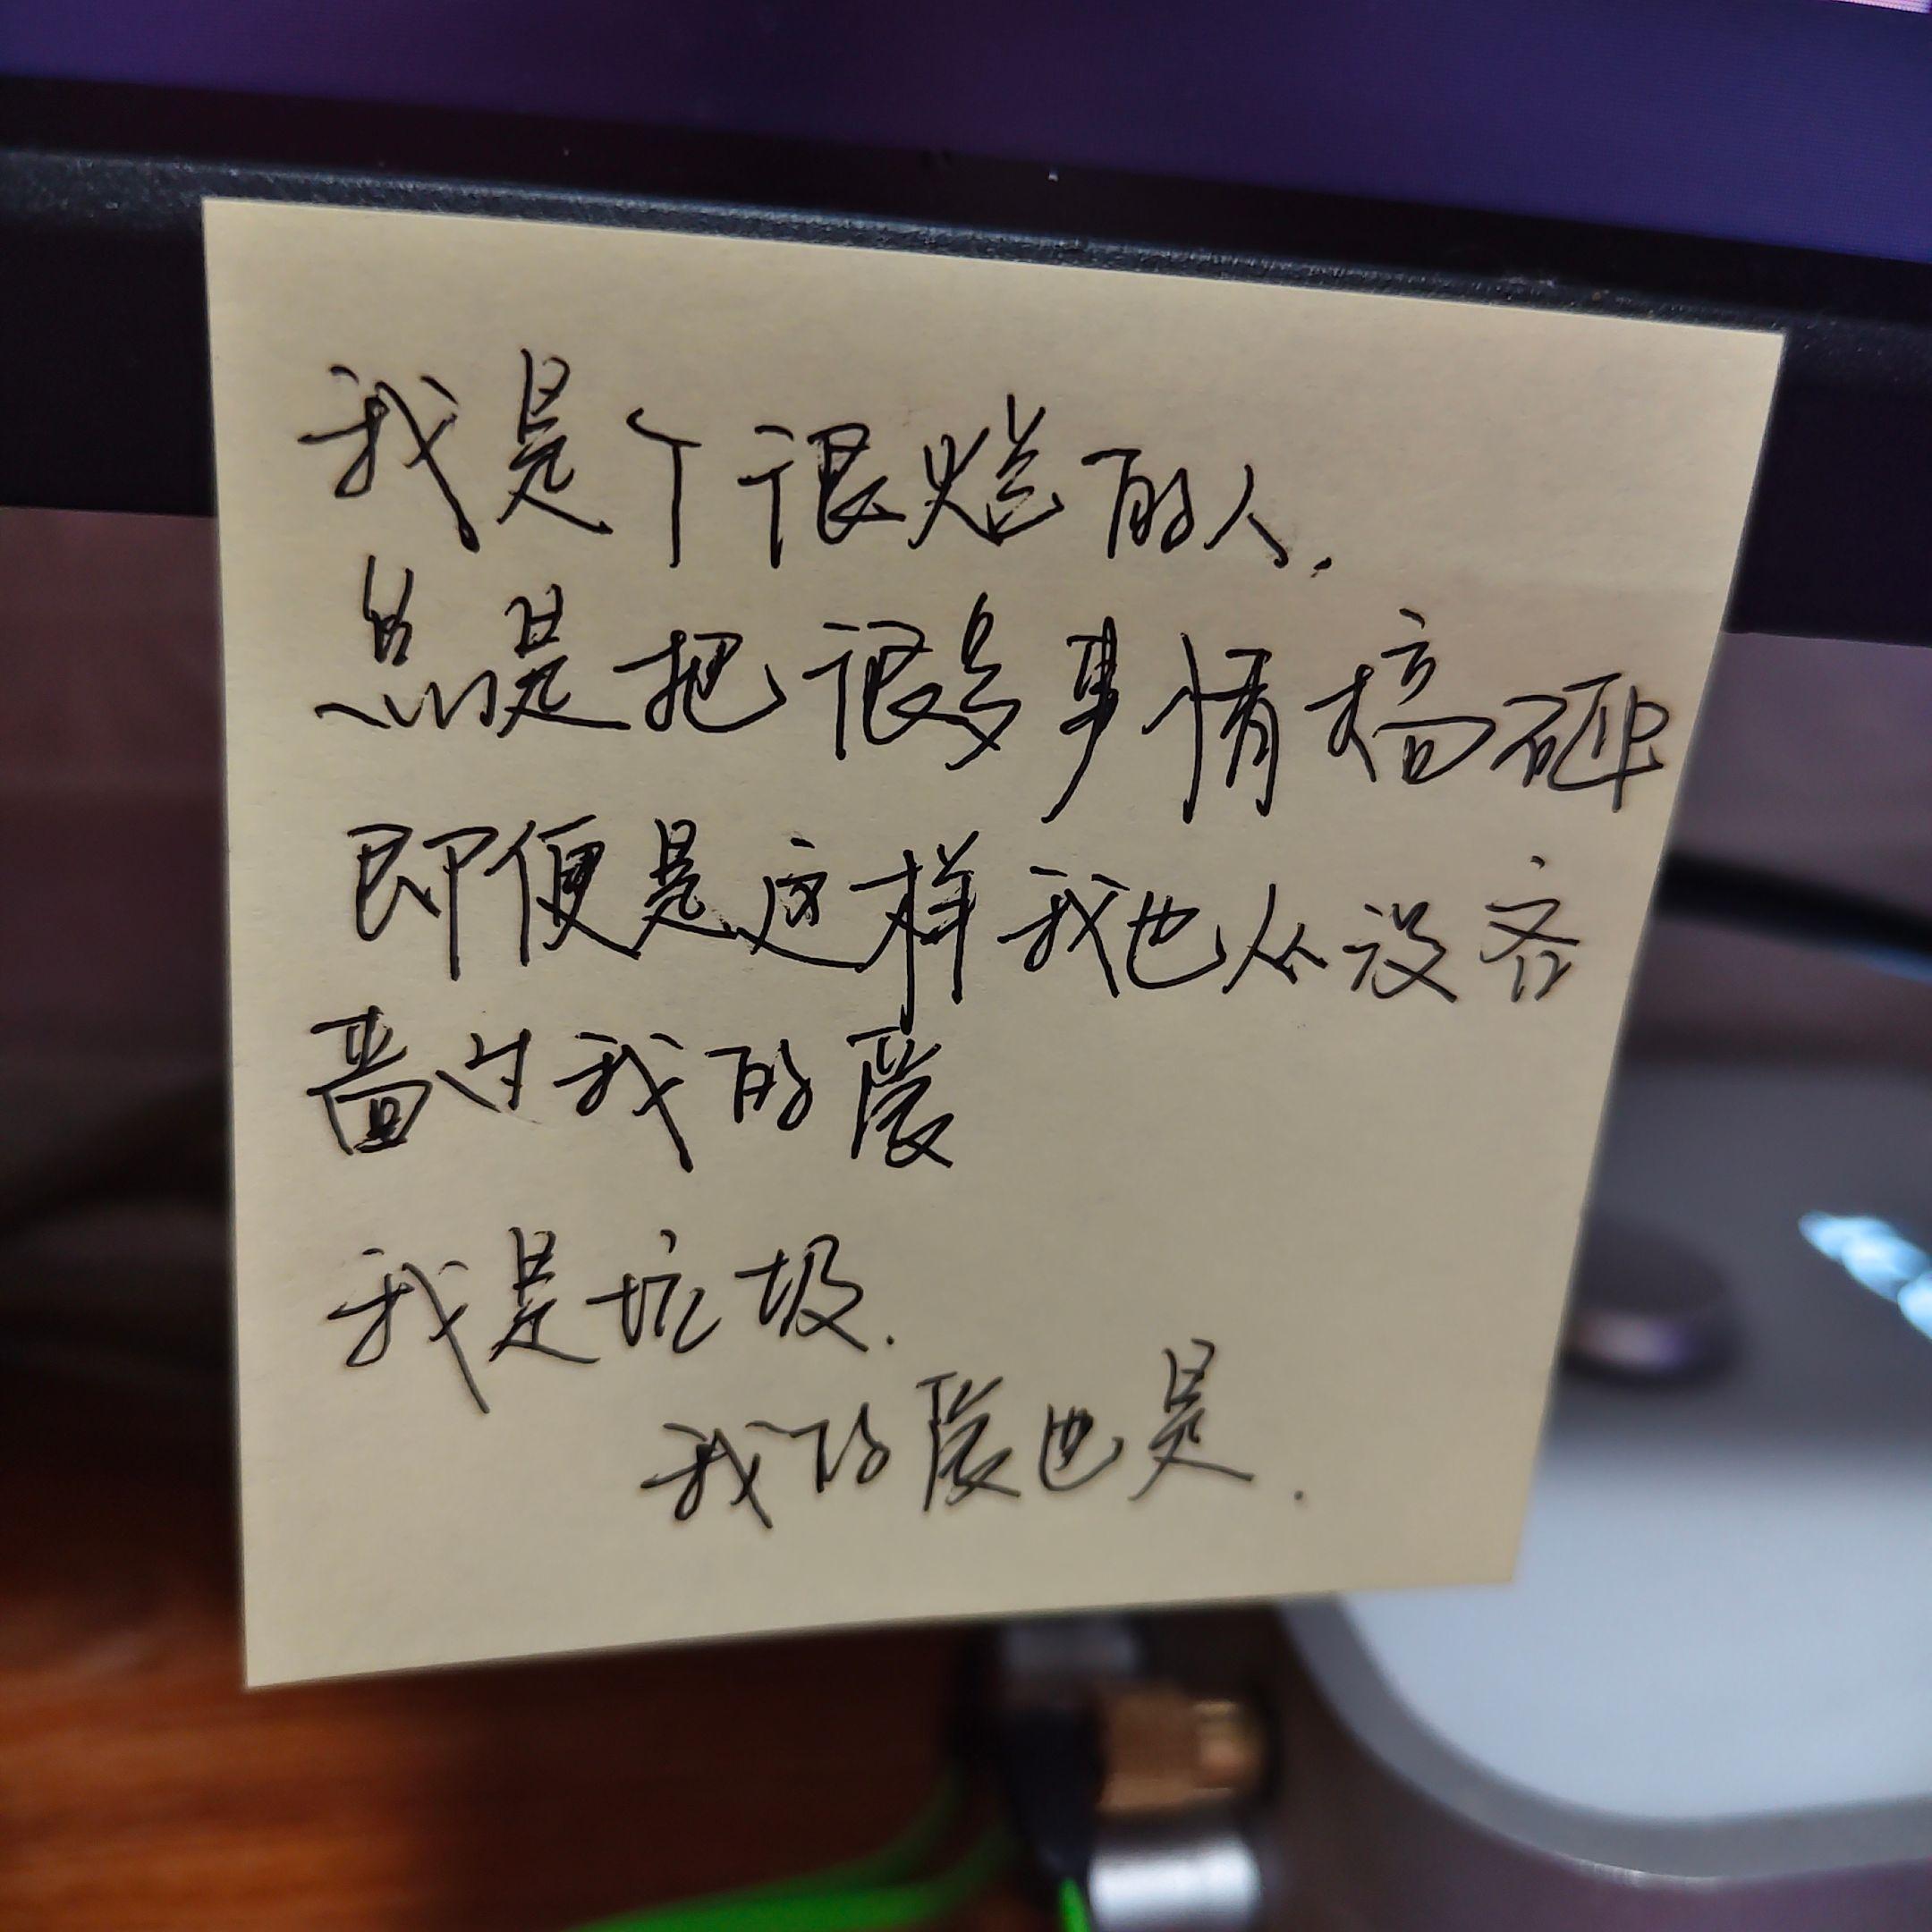 我是个很烂的人.
总是把很多事情搞砸
即便是这样我也从没吝
啬过我的爱
我是垃圾.
我的爱也是.